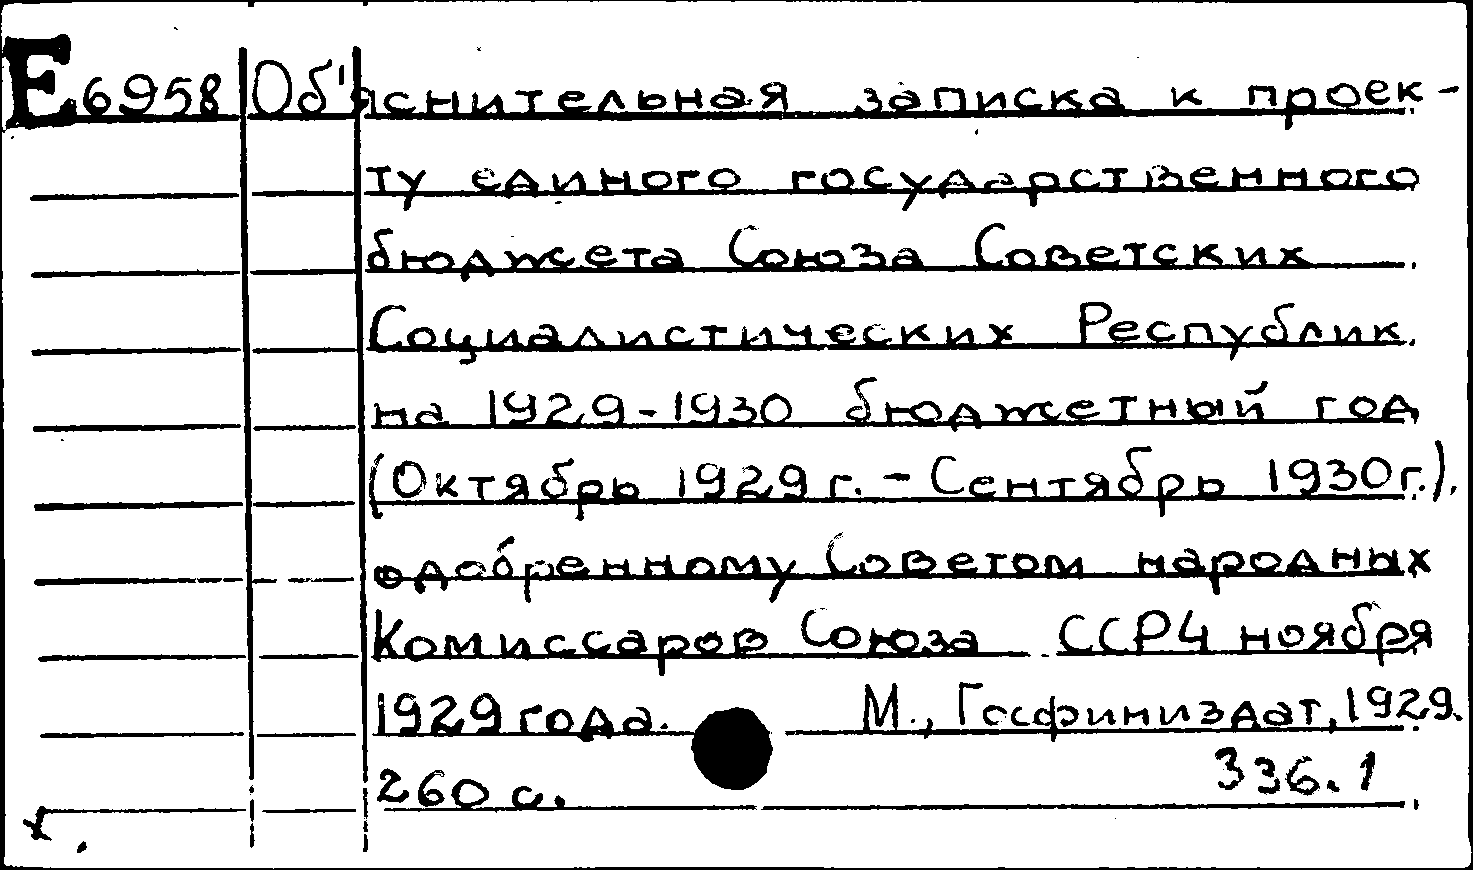 Е6958 Об'яснительная записка к проек-
ту единого государственного
бюджета Союза Советских
Социалистических Республик
на 1929-1930 бюджетный год
(Октябрь 1929 г. - Сентябрь 1930 г.),
одобренному Советом народных
Комиссаров Союза ССР 4 ноября
1929 года. М., Госфиниздат, 1929.
260 с. 336.1
х.